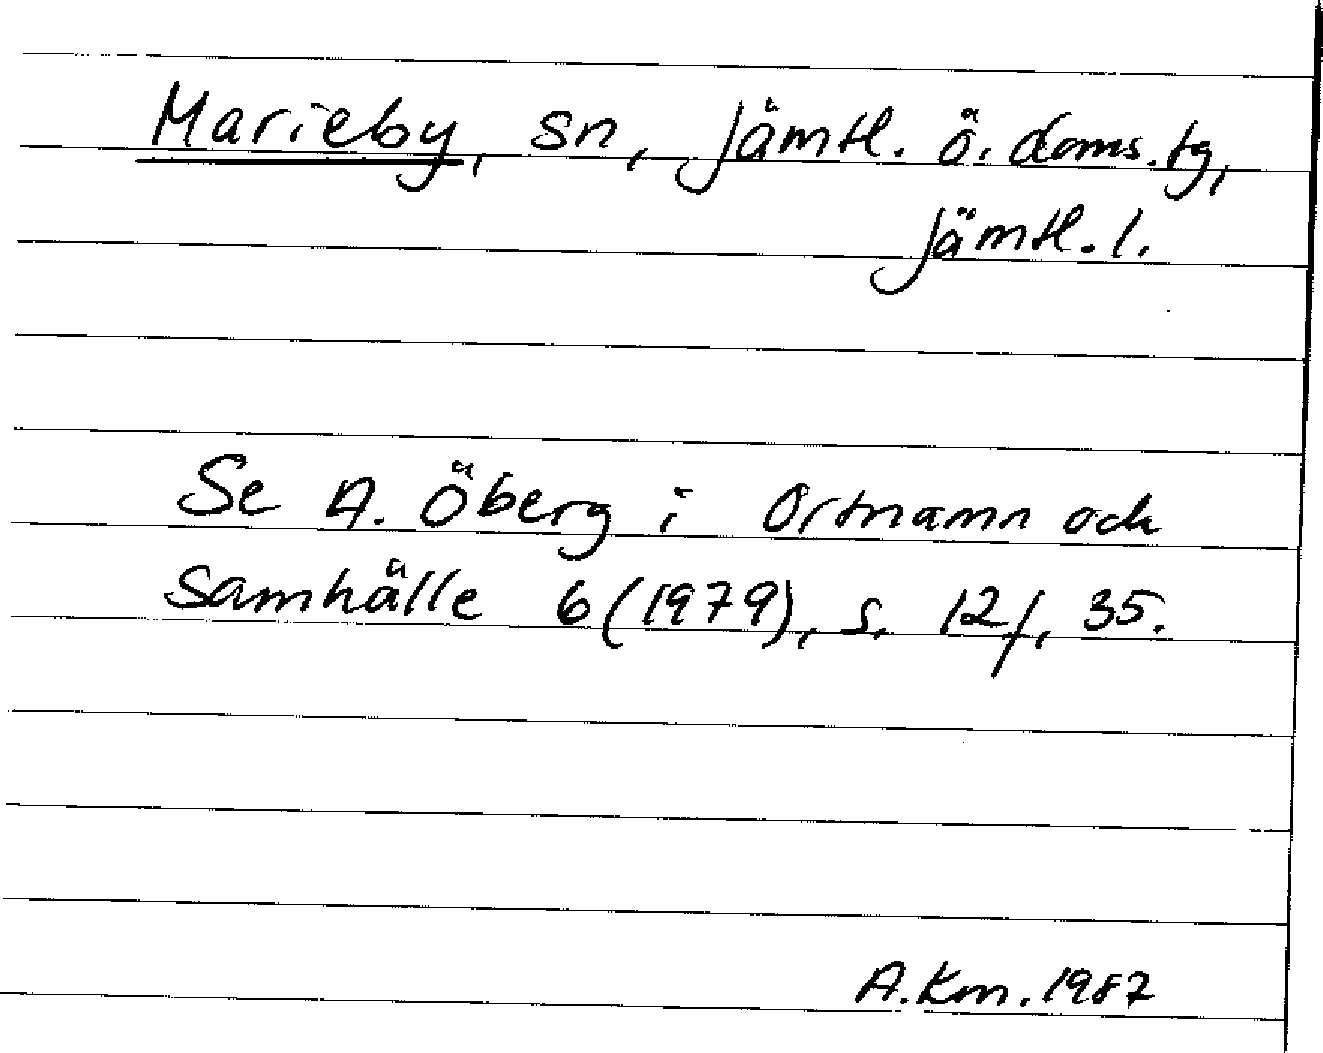 Marieby, sn, Jämtl. ö. doms. tg,
Jämtl. l.
Se A. Öberg i Ortnamn och
samhälle 6 (1979), s. 12f, 35.
A.Km. 1987